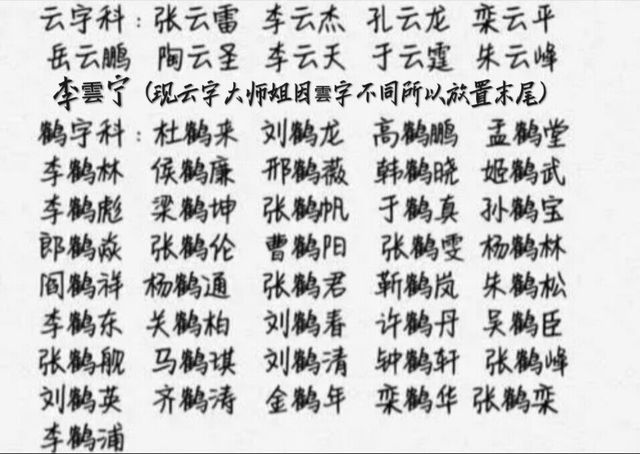 云字科：张云雷 李云杰 孔云龙 栾云平
岳云鹏 陶云圣 李云天 于云霆 朱云峰
李雲宁（现云字大师姐因雲字不同所以放置末尾）
鹤字科：杜鹤来 刘鹤龙 高鹤鹏 孟鹤堂
李鹤林 侯鹤廉 邢鹤薇 韩鹤晓 姬鹤武
李鹤彪 梁鹤坤 张鹤帆 于鹤真 孙鹤宝
郎鹤焱 张鹤伦 曹鹤阳 张鹤雯 杨鹤林
阎鹤祥 杨鹤通 张鹤君 靳鹤岚 朱鹤松
李鹤东 关鹤柏 刘鹤春 许鹤丹 吴鹤臣
张鹤舰 马鹤琪 刘鹤清 钟鹤轩 张鹤峰
刘鹤英 齐鹤涛 金鹤年 栾鹤华 张鹤栾
李鹤浦